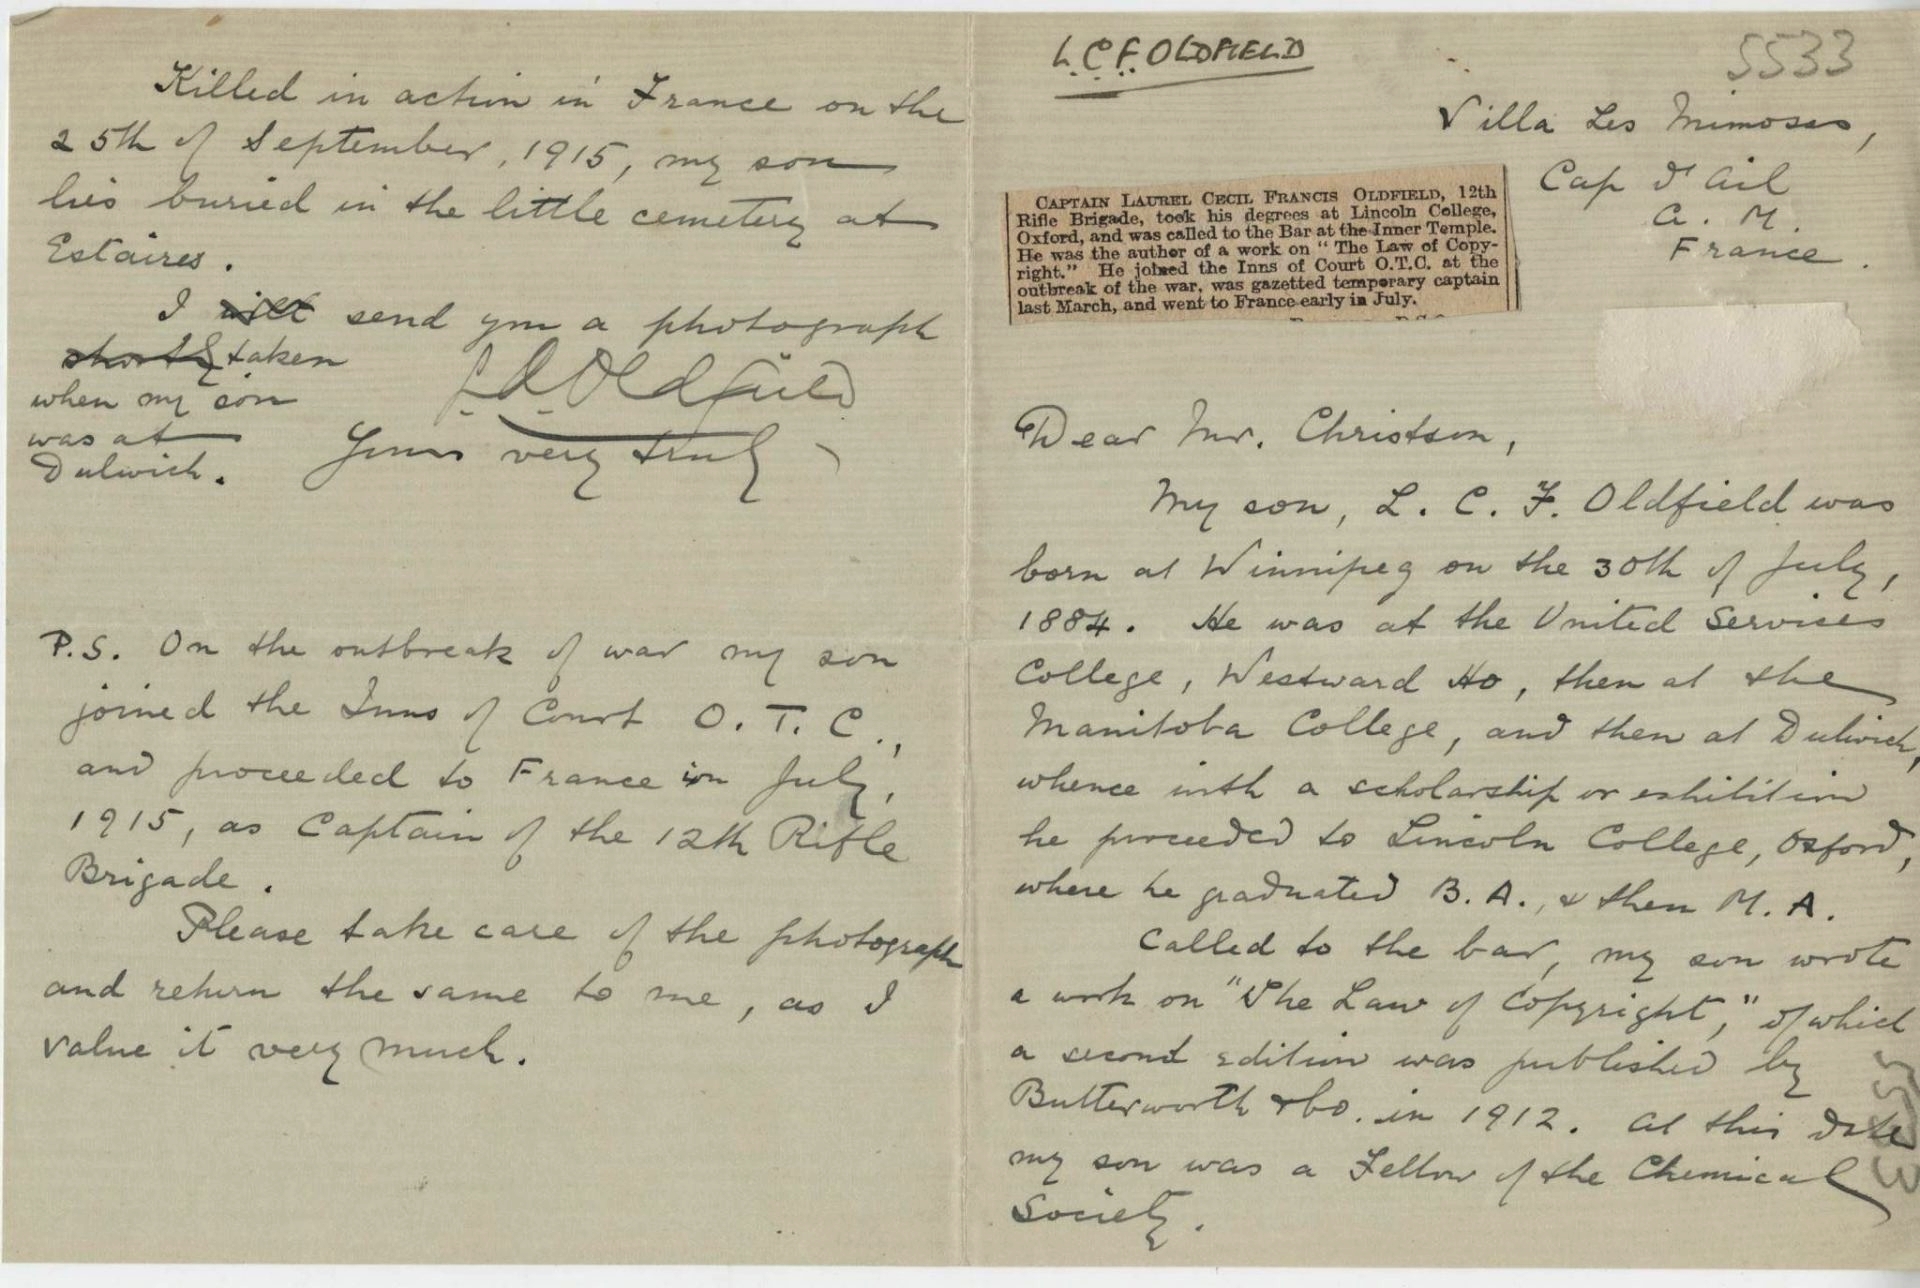 L.C.F. OLDFIELD
5533
Villa Les Mimosas,
Cap d'Ail
A. M.
France.
CAPTAIN LAUREL CECIL FRANCIS OLDFIELD, 12th
Rifle Brigade, took his degrees at Lincoln College,
Oxford, and was called to the Bar at the Inner Temple.
He was the author of a work on "The Law of Copy-
right." He joined the Inns of Court O.T.C. at the
outbreak of the war, was gazetted temporary captain
last March, and went to France early in July.
Dear Mr. Christson,
My son, L. C. F. Oldfield was
born at Winnipeg on the 30th of July,
1884. He was at the United Services
College, Westward Ho, then at the
Manitoba College, and then at Dulwich,
whence with a scholarship or exhibition
he proceeded to Lincoln College, Oxford,
where he graduated B. A., & then M. A.
Called to the bar, my son wrote
a work on "The Law of Copyright," of which
a second edition was published by
Butterworth & Co. in 1912. At this date
my son was a Fellow of the Chemical
Society.
5533
Killed in action in France on the
25th of September, 1915, my son
lies buried in the little cemetery at
Estaires.
I will send you a photograph
shortly taken
when my son
was at
Dulwich.
Oldfield
Yours very truly
P.S. On the outbreak of war my son
joined the Inns of Court O. T. C.,
and proceeded to France in July,
1915, as Captain of the 12th Rifle
Brigade.
Please take care of the photograph
and return the same to me, as I
value it very much.